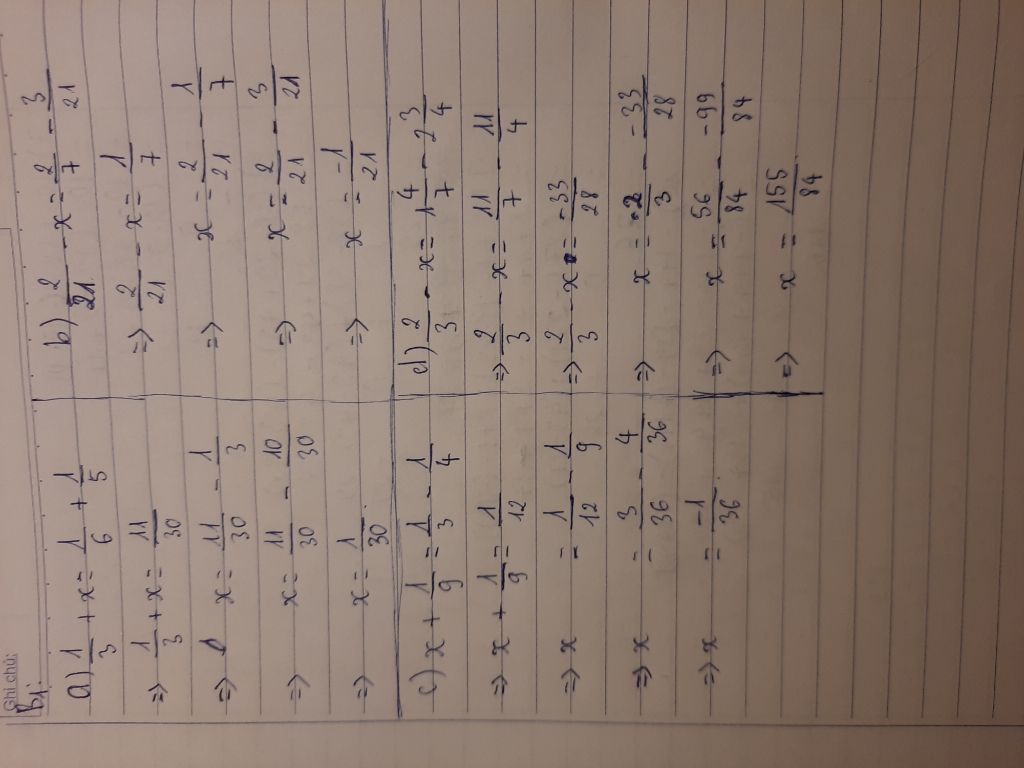 Ghi chú:
B1:
a) 1/3 + x = 1/6 + 1/5
=> 1/3 + x = 11/30
=> x = 11/30 - 1/3
=> x = 11/30 - 10/30
=> x = 1/30
b) 2/21 - x = 2/7 - 3/21
=> 2/21 - x = 1/7
=> x = 2/21 - 1/7
=> x = 2/21 - 3/21
=> x = -1/21
c) x + 1/9 = 1/3 - 1/4
=> x + 1/9 = 1/12
=> x = 1/12 - 1/9
=> x = 3/36 - 4/36
=> x = -1/36
d) 2/3 - x = 1 4/7 - 2 3/4
=> 2/3 - x = 11/7 - 11/4
=> 2/3 - x = -33/28
=> x = 2/3 - -33/28
=> x = 56/84 - -99/84
=> x = 155/84